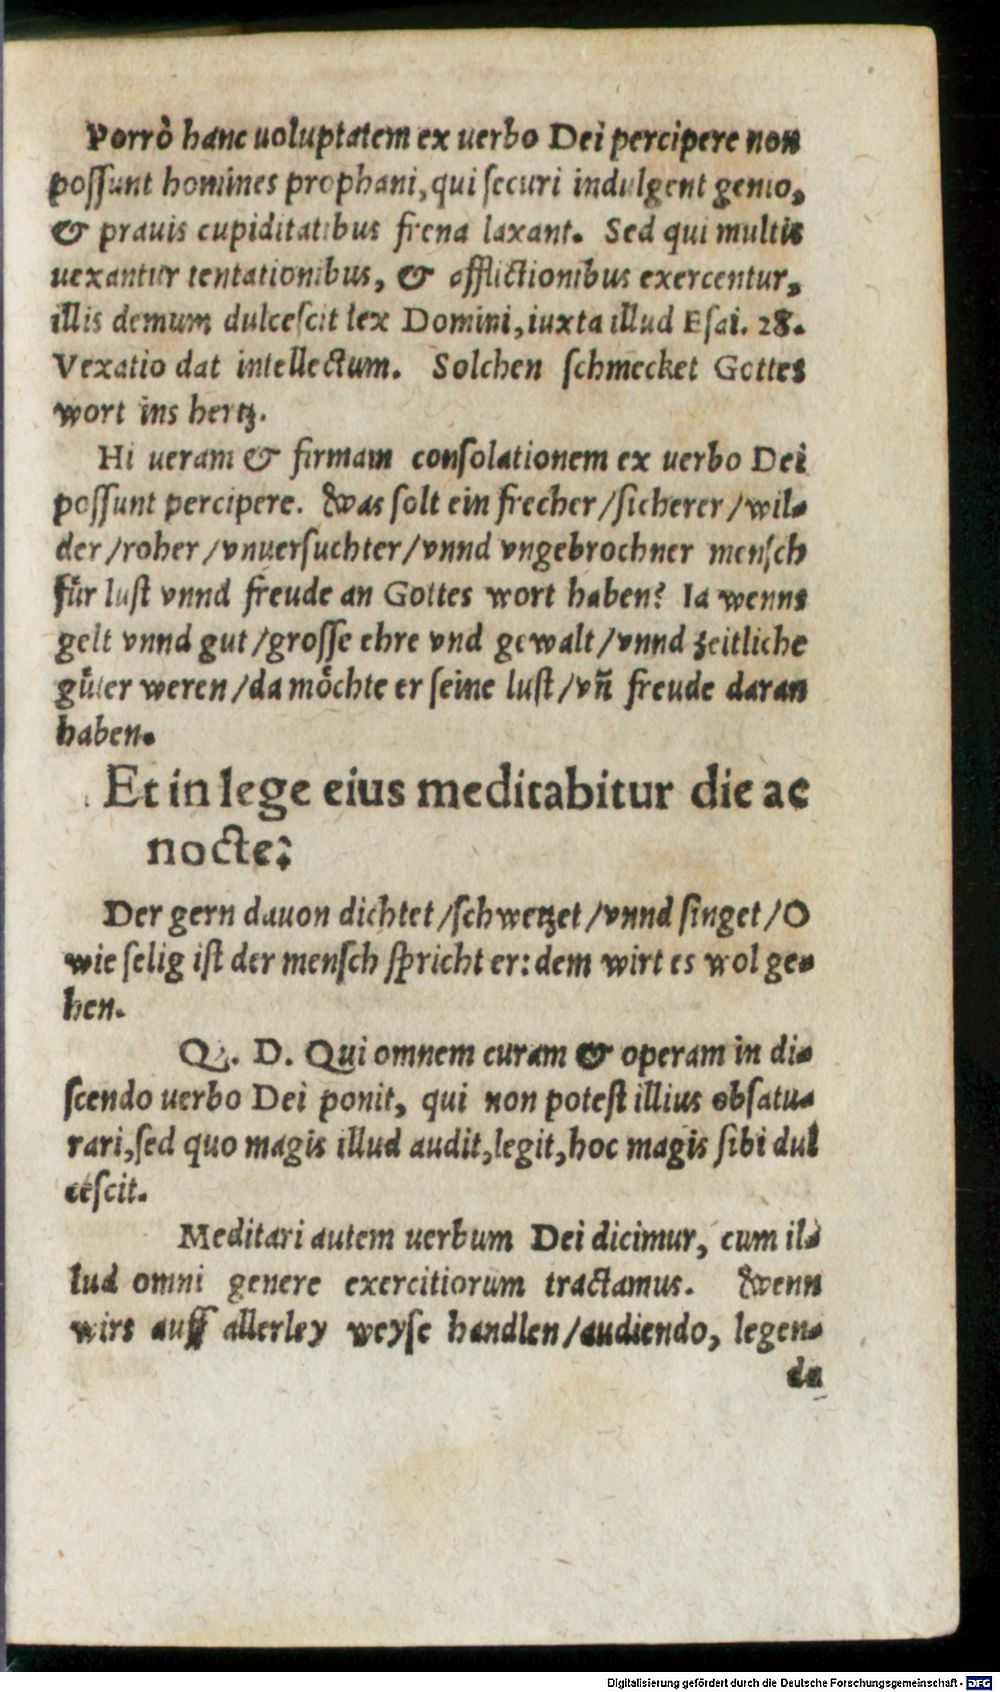 Porrò hanc uoluptatem ex uerbo Dei percipere non
possunt homines prophani, qui securi indulgent genio,
& prauis cupiditatibus frena laxant. Sed qui multis
uexantur tentationibus, & afflictionibus exercentur,
illis demum dulcescit lex Domini, iuxta illud Esai. 28.
Vexatio dat intellectum. Solchen schmecket Gottes
wort ins hertz.
Hi ueram & firmam consolationem ex uerbo Dei
possunt percipere. Was solt ein frecher/sicherer/wil-
der/roher/vnuersuchter/vnnd vngebrochner mensch
für lust vnnd freude an Gottes wort haben? Ia wenns
gelt vnnd gut/grosse ehre vnd gewalt/vnnd zeitliche
güter weren/da möchte er seine lust/vn̄ freude daran
haben.
Et in lege eius meditabitur die ac
nocte;
Der gern dauon dichtet/schwetzet/vnnd singet/O
wie selig ist der mensch spricht er: dem wirt es wol ge-
hen.
Q. D. Qui omnem curam & operam in di-
scendo uerbo Dei ponit, qui non potest illius obsatu-
rari, sed quo magis illud audit, legit, hoc magis sibi dul
cescit.
Meditari autem uerbum Dei dicimur, cum il-
lud omni genere exercitiorum tractamus. Wenn
wirs auff allerley weyse handlen/audiendo, legen-
do
Digitalisierung gefördert durch die Deutsche Forschungsgemeinschaft - DFG